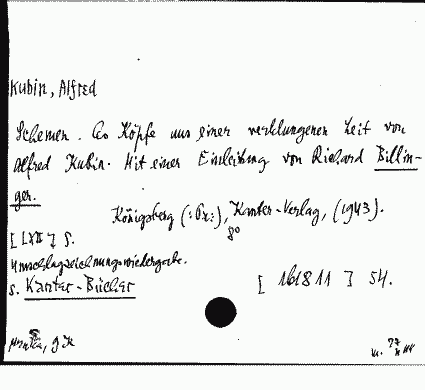 Kubin, Alfred
Schemen. 60 Köpfe aus einer verklungenen Zeit von
Alfred Kubin. Mit einer Einleitung von Richard Billin-
ger.
Königsberg (:Pr:), Kanter-Verlag, (1943).
8°
[LXII] S.
Umschlagzeichnungswiedergabe.
S. Kanter-Bücher
[161811] 54.